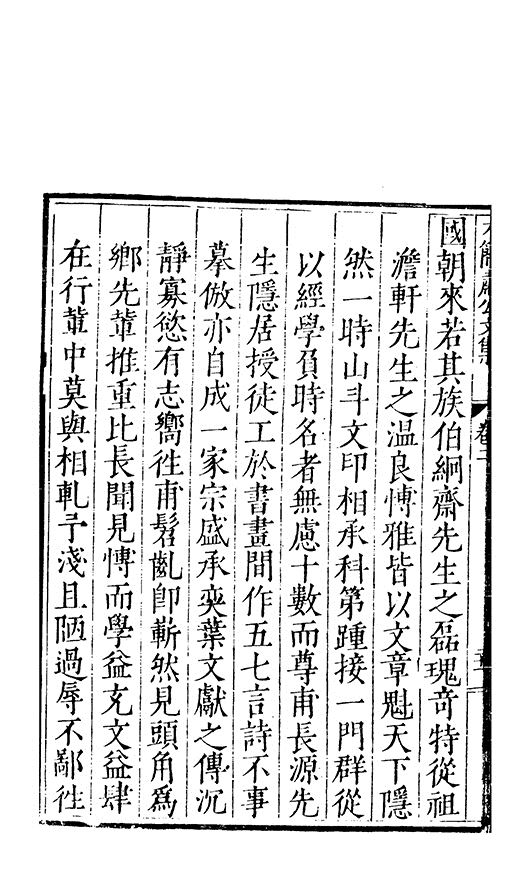 國朝來若其族伯絅齋先生之磊瑰竒特從祖
澹軒先生之温良慱雅皆以文章魁天下隱
然一時山斗文印相承科第踵接一門群從
以經學負時名者無慮十數而尊甫長源先
生隱居授徒工於書畫間作五七言詩不事
摹倣亦自成一家宗盛承奕葉文獻之傳沉
靜寡慾有志嚮徃甫髫齓卽嶄然見頭角爲
鄉先軰推重比長聞見慱而學益充文益肆
在行軰中莫與相軋予淺且陋過辱不鄙徃